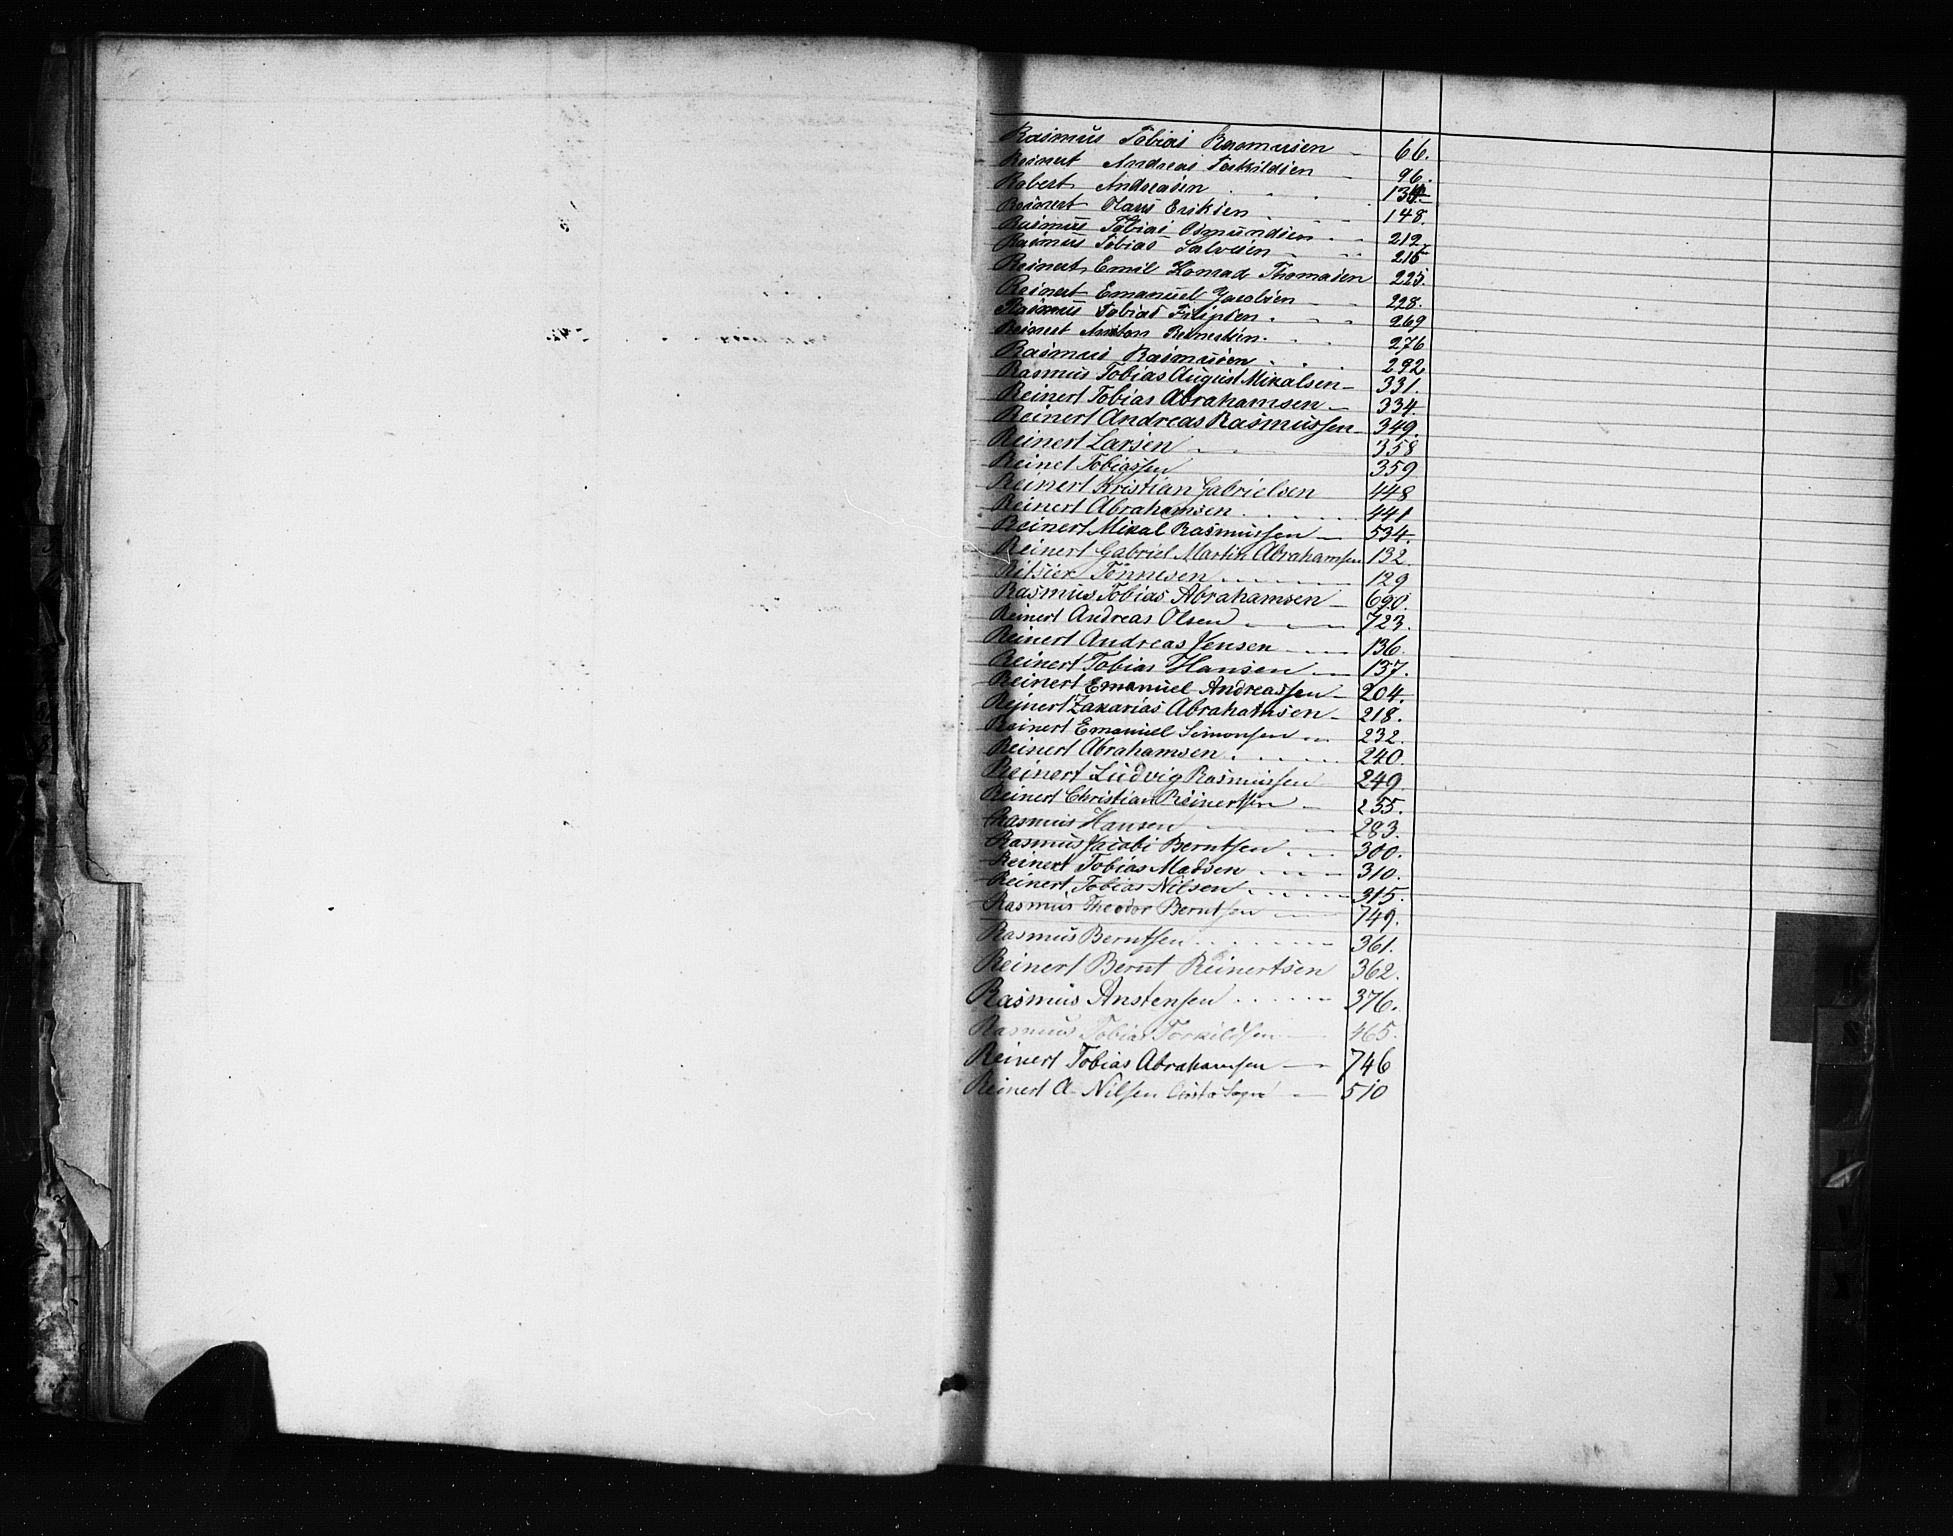 Rasmus Tobias Rasmusen 66.
Reinert Andreas Torkildsen 96.
Robert Andreasen
Reinert Hans Eriksen 148.
Rasmus Tobias Osmundsen 212.
Rasmus Tobias Salvesen 216
Reinert Emil Konrad Thomasen 225.
Reinert Emanuel Jacobsen 228.
Rasmus Tobias Filipsen 269
Reinert Anton Berntsen 276
Rasmus Rasmusen 292
Rasmus Tobias August Mikalsen 331.
Reinert Tobias Abrahamsen 334.
Reinert Andreas Rasmussen 349.
Reinert Larsen 358
Reinet Tobiassen 359
Reinert Kristian Gabrielsen 448
Reinert Abrahamsen 441
Reinert Mikal Rasmussen 534.
Reinert Gabriel Martin Abrahamsen 132.
Tønnesen 129
Rasmus Tobias Abrahamsen 690.
Reinert Andreas Olsen 723.
Reinert Andreas Jensen 136.
Reinert Tobias Hansen 137.
Reinert Emanuel Andreassen 204.
Reinert Zakarias Abrahamsen 218.
Reinert Emanuel Simonsen 232.
Reinert Abrahamsen 240.
Reinert Ludvig Rasmussen 249.
Reinert Christian Reinertsen 255.
Rasmus Hansen 283.
Rasmus Jacobi Berntsen 300.
Reinert Tobias Madsen 310.
Reinert Tobias Nilsen 315.
Rasmus Theodor Berntsen 749.
Rasmus Berntsen 361.
Reinert Bernt Reinertsen 362.
Rasmus Anstensen 376.
Rasmus Tobias Torkildsen 465.
Reinert Tobias Abrahamsen 746
Reinert A. Nilsen 510